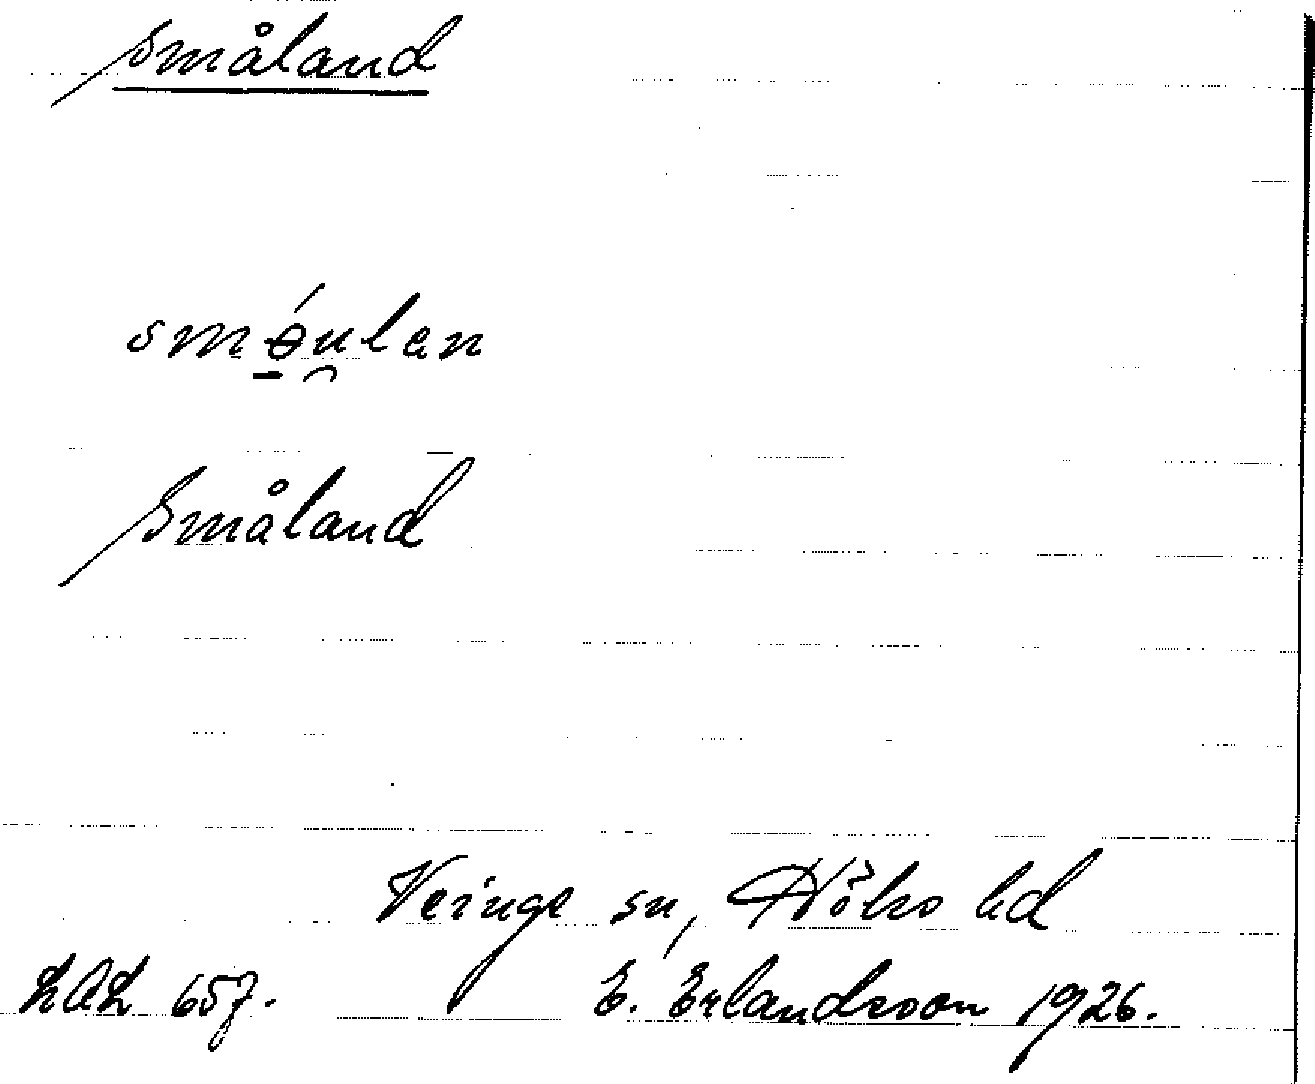 Småland
smɵ́u̯lan
Småland
Veinge sn, Höks hd
LAL 657.
E. Erlandsson 1926.